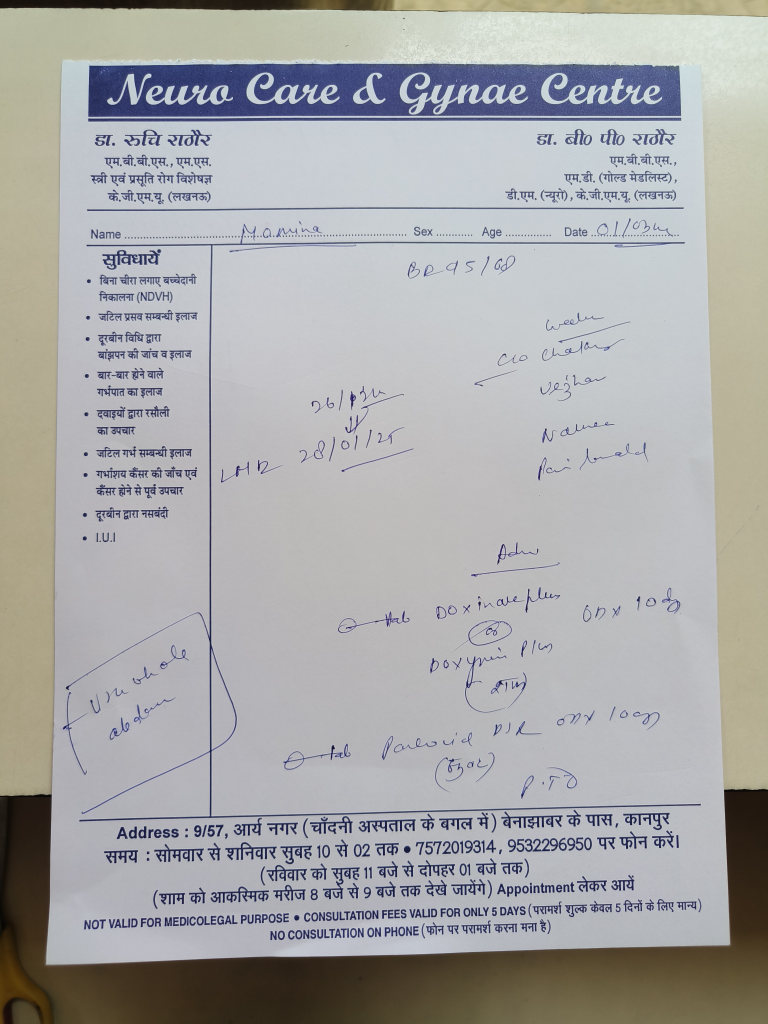 Neuro Care & Gynae Centre
डा. रुचि राठौर
एम.बी.बी.एस., एम.एस.
स्त्री एवं प्रसूति रोग विशेषज्ञ
के.जी.एम.यू. (लखनऊ)
डा. बी० पी० राठौर
एम.बी.बी.एस.,
एम.डी. (गोल्ड मेडलिस्ट),
डी.एम. (न्यूरो), के.जी.एम.यू. (लखनऊ)
Name Momina Sex Age Date 01/03/
सुविधायें
• बिना चीरा लगाए बच्चेदानी
निकालना (NDVH)
• जटिल प्रसव सम्बन्धी इलाज
• दूरबीन विधि द्वारा
बांझपन की जांच व इलाज
• बार-बार होने वाले
गर्भपात का इलाज
• दवाइयों द्वारा रसौली
का उपचार
• जटिल गर्भ सम्बन्धी इलाज
• गर्भाशय कैंसर की जाँच एवं
कैंसर होने से पूर्व उपचार
• दूरबीन द्वारा नसबंदी
• I.U.I
BP 95/68
C/O
26/
LMP 28/01/25
Adv
Tab Doxinate plus OD x 10
Plus
(शाम)
Tab DSR OD x 10
(सुबह)
P.T.O
whole
abdomen
Address : 9/57, आर्य नगर (चाँदनी अस्पताल के बगल में) बेनाझाबर के पास, कानपुर
समय : सोमवार से शनिवार सुबह 10 से 02 तक • 7572019314, 9532296950 पर फोन करें।
(रविवार को सुबह 11 बजे से दोपहर 01 बजे तक)
(शाम को आकस्मिक मरीज 8 बजे से 9 बजे तक देखे जायेंगे) Appointment लेकर आयें
NOT VALID FOR MEDICOLEGAL PURPOSE • CONSULTATION FEES VALID FOR ONLY 5 DAYS (परामर्श शुल्क केवल 5 दिनों के लिए मान्य)
NO CONSULTATION ON PHONE (फोन पर परामर्श करना मना है)